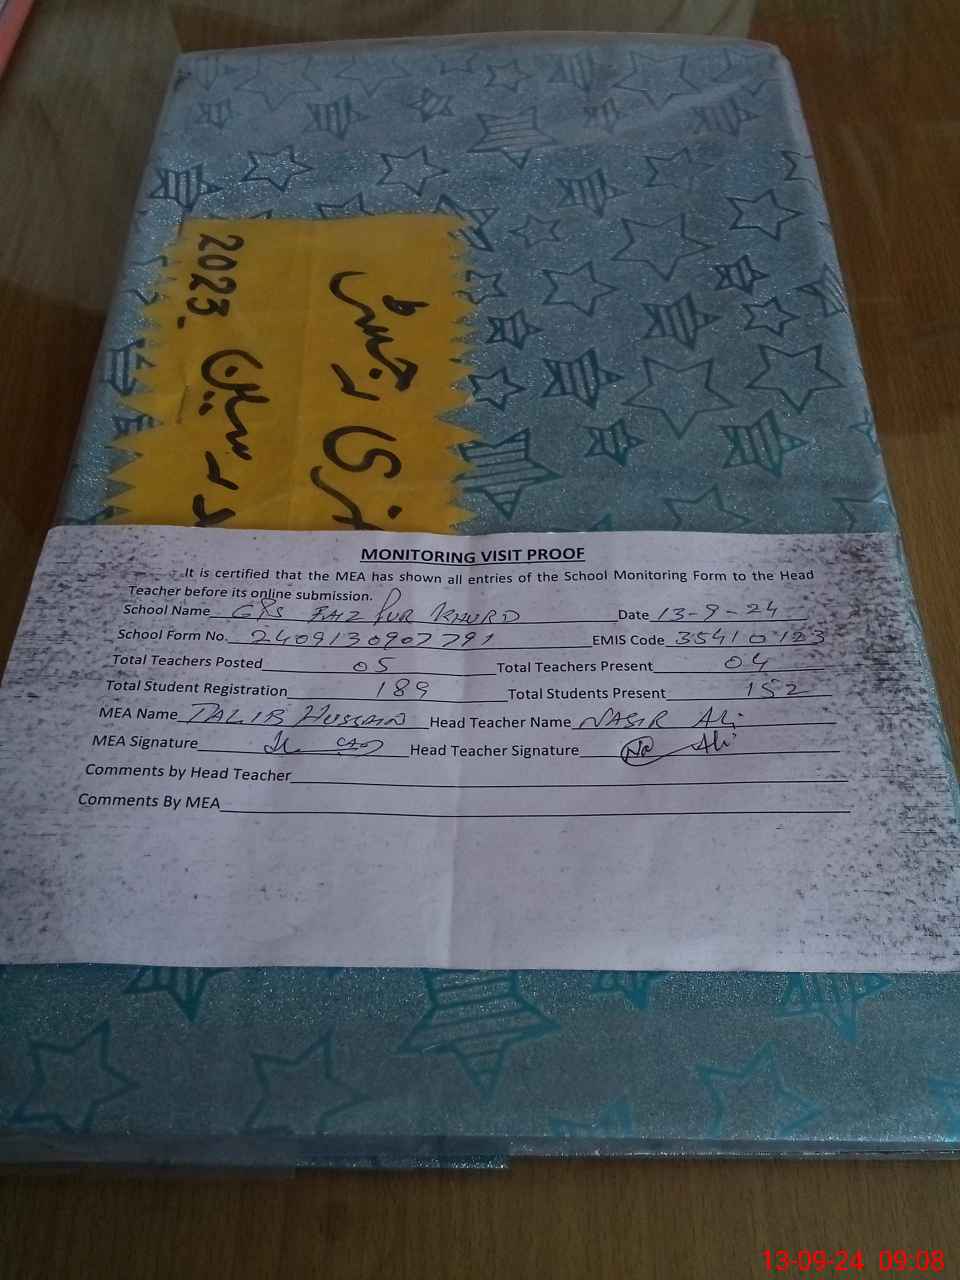 حاضری رجسٹر
مدرسین 2023.
MONITORING VISIT PROOF
It is certified that the MEA has shown all entries of the School Monitoring Form to the Head
Teacher before its online submission.
School Name GPS FAIZ PUR KHURD Date 13-9-24
School Form No. 2409130907791 EMIS Code 35410123
Total Teachers Posted 05 Total Teachers Present 04
Total Student Registration 189 Total Students Present 152
MEA Name TALIB HUSSAIN Head Teacher Name NASIR Ali
MEA Signature Head Teacher Signature Ali
Comments by Head Teacher
Comments By MEA
13-09-24 09:08